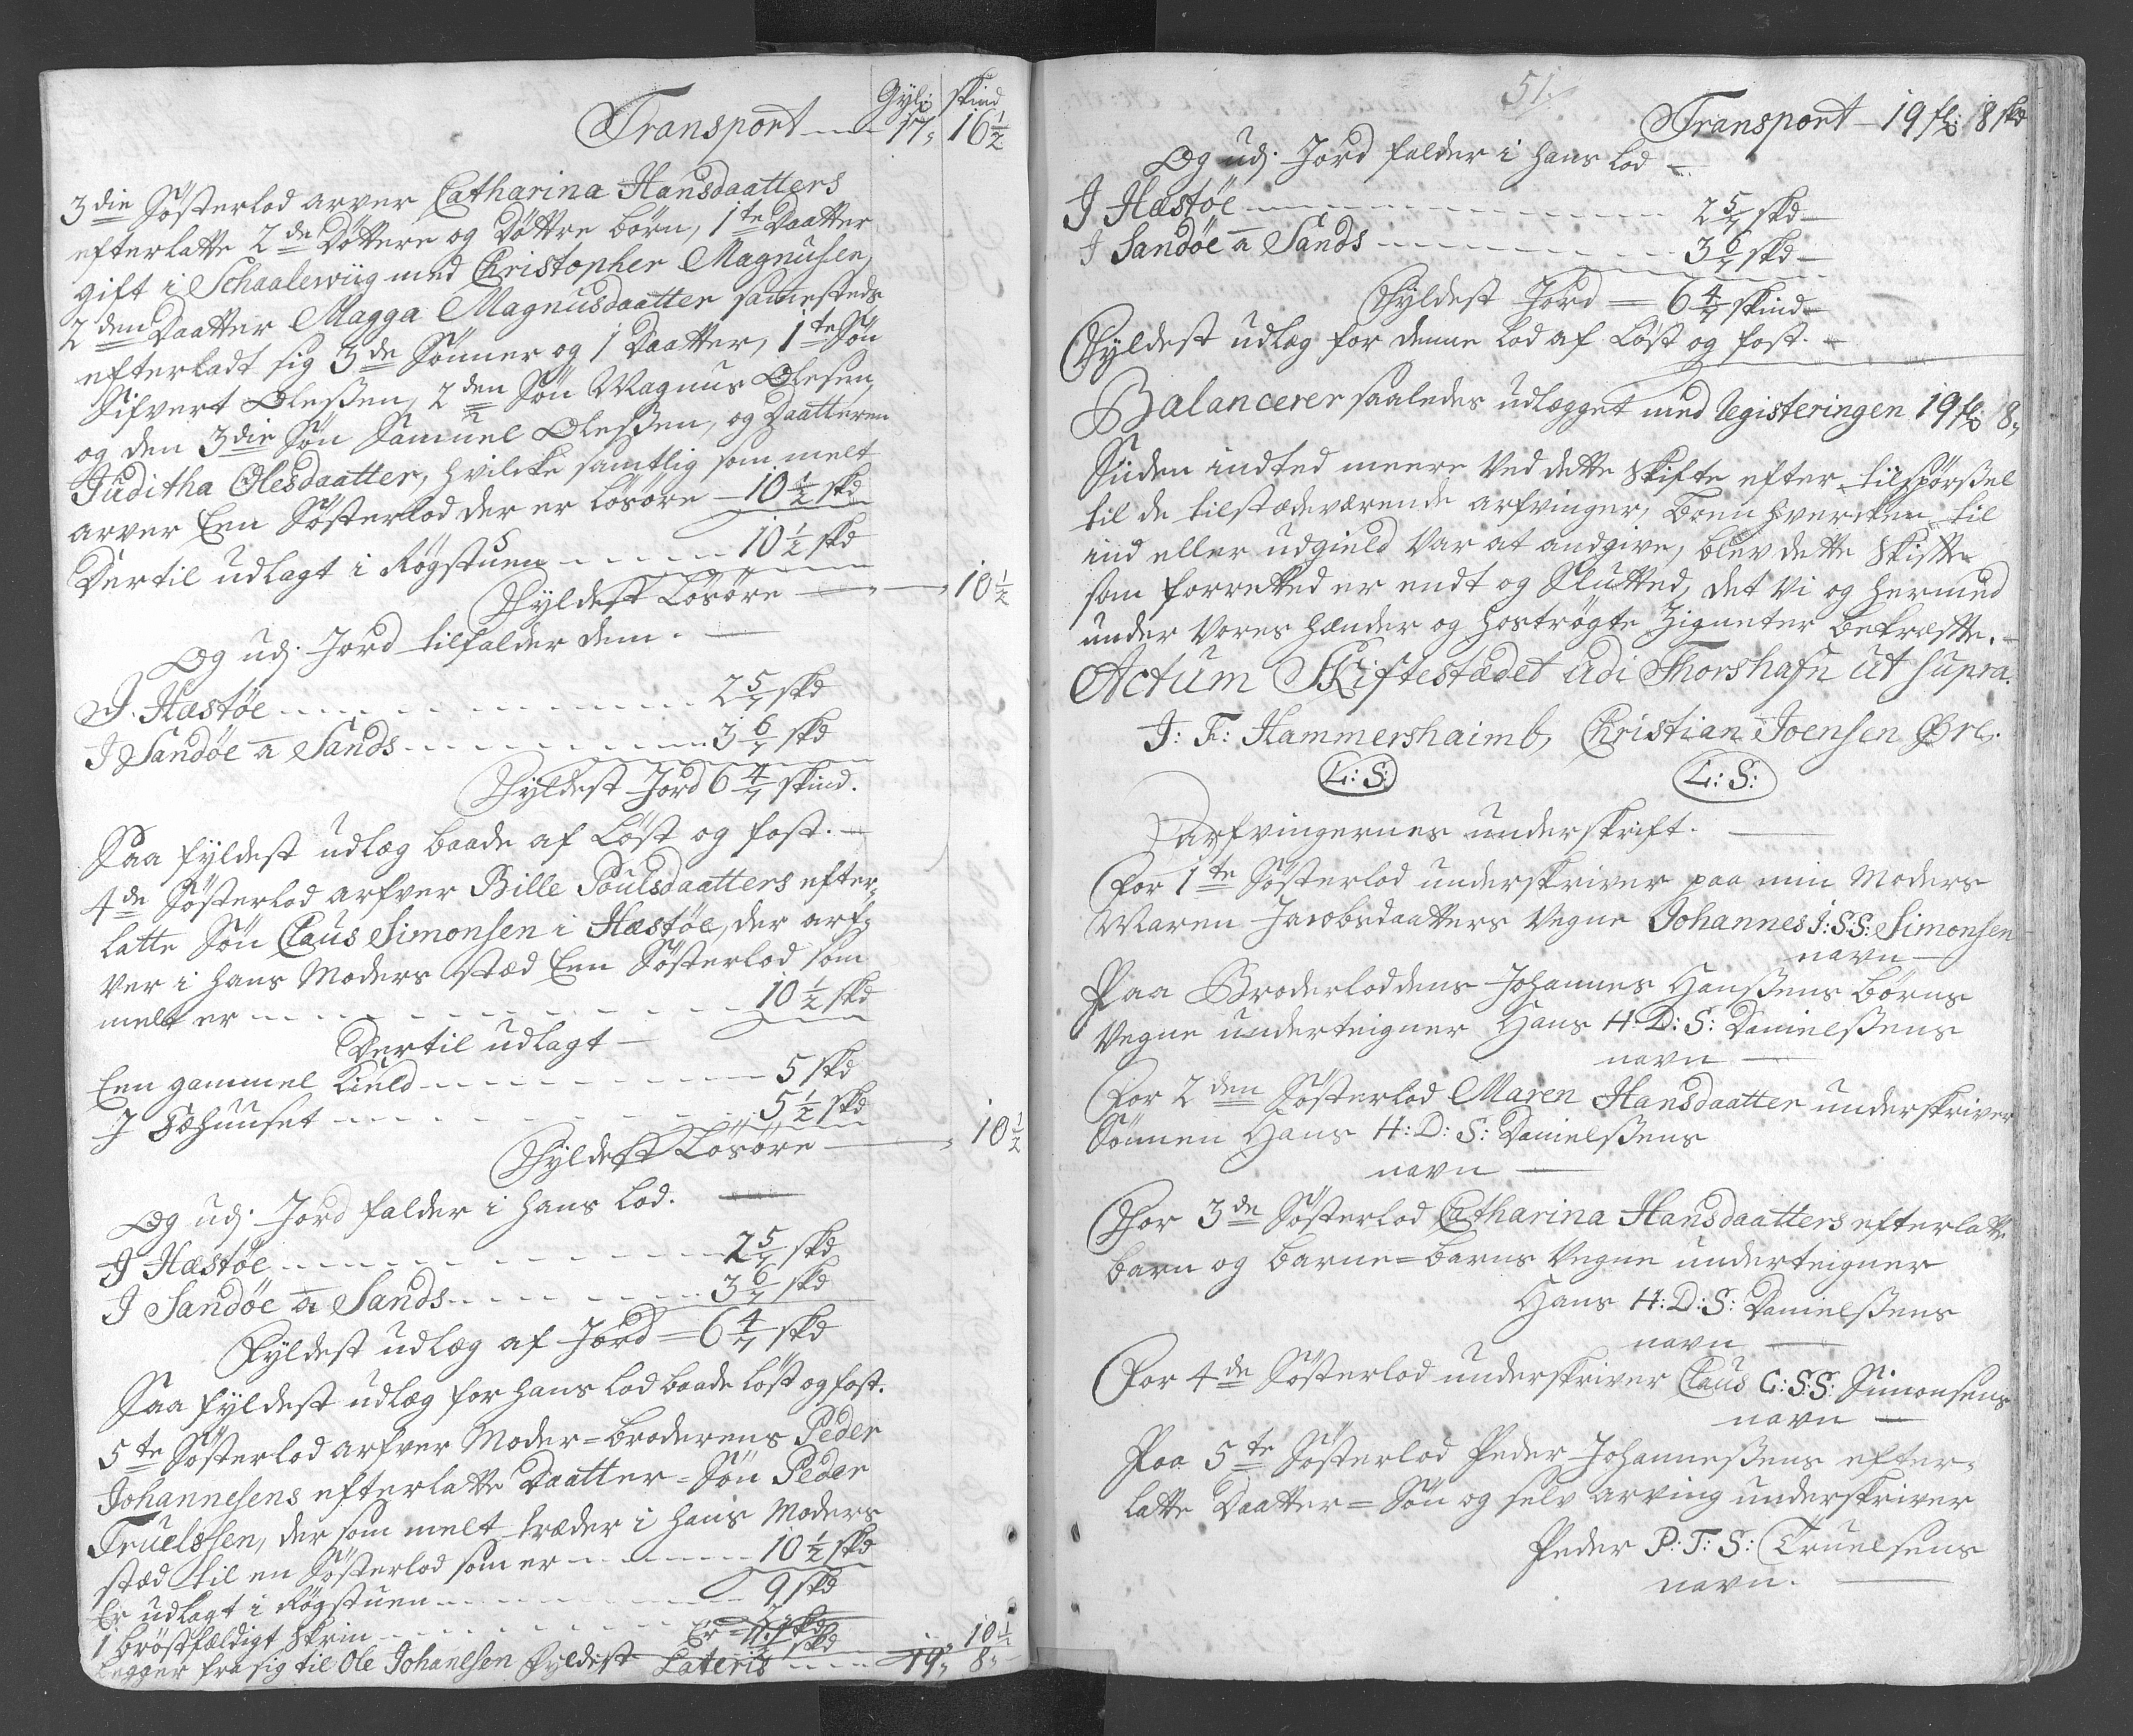 Gyl: skind
Transport --- 17, 16 1/2
3die Søsterlod arver Catharina Hansdaatters
efterlatte 2de Døttere og Døttre børn, 1te Daatter
gift i Schaalewiig med Christopher Magnusen
2den Daatter Magga Magnusdaatter samesteds
efterladt sig 3de Sønner og 1 Daatter, 1te Søn
Sifvert Oleßen, 2den Søn Magnus Olesen
og den 3die Søn Samuel Oleßen, og Daatteren
Juditha Olesdaatter, hvilcke samtlig som melt
arver Een Søsterlod der er løsøre — 10 1/2 skd
Dertil udlagt i Røgstuen - - - - 10 1/2 skd
Fyldest Løsøre — — „ 10 1/2
Og udj Jord tilfalder dem. —
J. Hæstøe - - - - - 2 5/7 skd
J Sandøe a Sands - - - - - 3 6/7 skd
Fyldest Jord 6 4/7 skind.
Saa fyldest udlæg baade af Løst og fast. —
4de Søsterlod arfver Bille Poulsdaatters efter-
latte Søn Claus Simonsen i Hæstøe, der arf-
ver i hans Moders stæd Een Søsterlod som
melt er - - - - - 10 1/2 skd
Dertil udlagt —
Een gammel Kield - - - - - 5 skd
J Fæhuuset - - - - - 5 1/2 skd
Fyldest Løsøre — „ 10 1/2
Og udj Jord falder i hans lod. —
J Hæstøe - - - - - 2 5/7 skd
J Sandøe a Sands - - - - - 3 6/7 skd
Fyldest udlæg af Jord = 6 4/7 skd
Saa fyldest udlæg for hans lod baade løst og fast.
5te Søsterlod arfver Moder=broderens Peder
Johannesens efterlatte Daatter=Søn Peder
Truelssen, der som melt træder i hans Moders
stæd til en Søsterlod som er - - - - 10 1/2 skd
Er udlagt i Røgstuen - - - - - 9 skd
1 brøstfældigt skrin - - - - -
Legger fra sig til Ole Johanesen fyldest 10 1/2
Lateris - - - - 19, 8„
51.
Transport — 19 fl: 8 skd
Og udj Jord falder i hans lod —
J Hæstøe - - - - - 2 5/7 skd —
J Sandøe a Sands - - - - - 3 6/7 skd —
Fyldest Jord = 6 4/7 skind —
Fyldest udlæg for denne lod af Løst og fast. —
Balancerer saaledes udlægget med Registeringen 19 fl: 8„
Siiden indted meere ved dette skifte efter tilspørßel
til de tilstædeværende arfvinger, boen hvercken til
ind eller udgield var at andgive, blev dette skifte
som forretted er endt og Slutted, det vi og hermed
under vores hænder og hostrøgte Zigneter bekræfte. —
Actum Skiftestædet udi Thorshafn ut supra.
J: F: Hammershaimb, Christian Joensen Øre.
L: S: L: S:
Arfvingernes underskrift. —
For 1te Søsterlod underskriver paa min Moders
Maren Jacobsdaatters vegne Johannes J:S:S: Simonsen
navn —
Paa Broderloddens Johannes Hanßens børns
vegne underteigner Hans H:D:S: Danielßens
navn —
For 2den Søsterlod Maren Hansdaatter underskriver
Sønnen Hans H:D:S: Danielßens
navn —
For 3de Søsterlod Catharina Hansdaatters efterlatte
barn og barne=barns vegne underteigner
Hans H:D:S: Danielßens
navn —
For 4de Søsterlod underskriver Claus C:S:S: Simonsens
navn —
Paa 5te Søsterlod Peder Johanneßens efter-
latte Daatter=Søn og selv arving underskriver
Peder P:T:S: Truelsens
navn. —